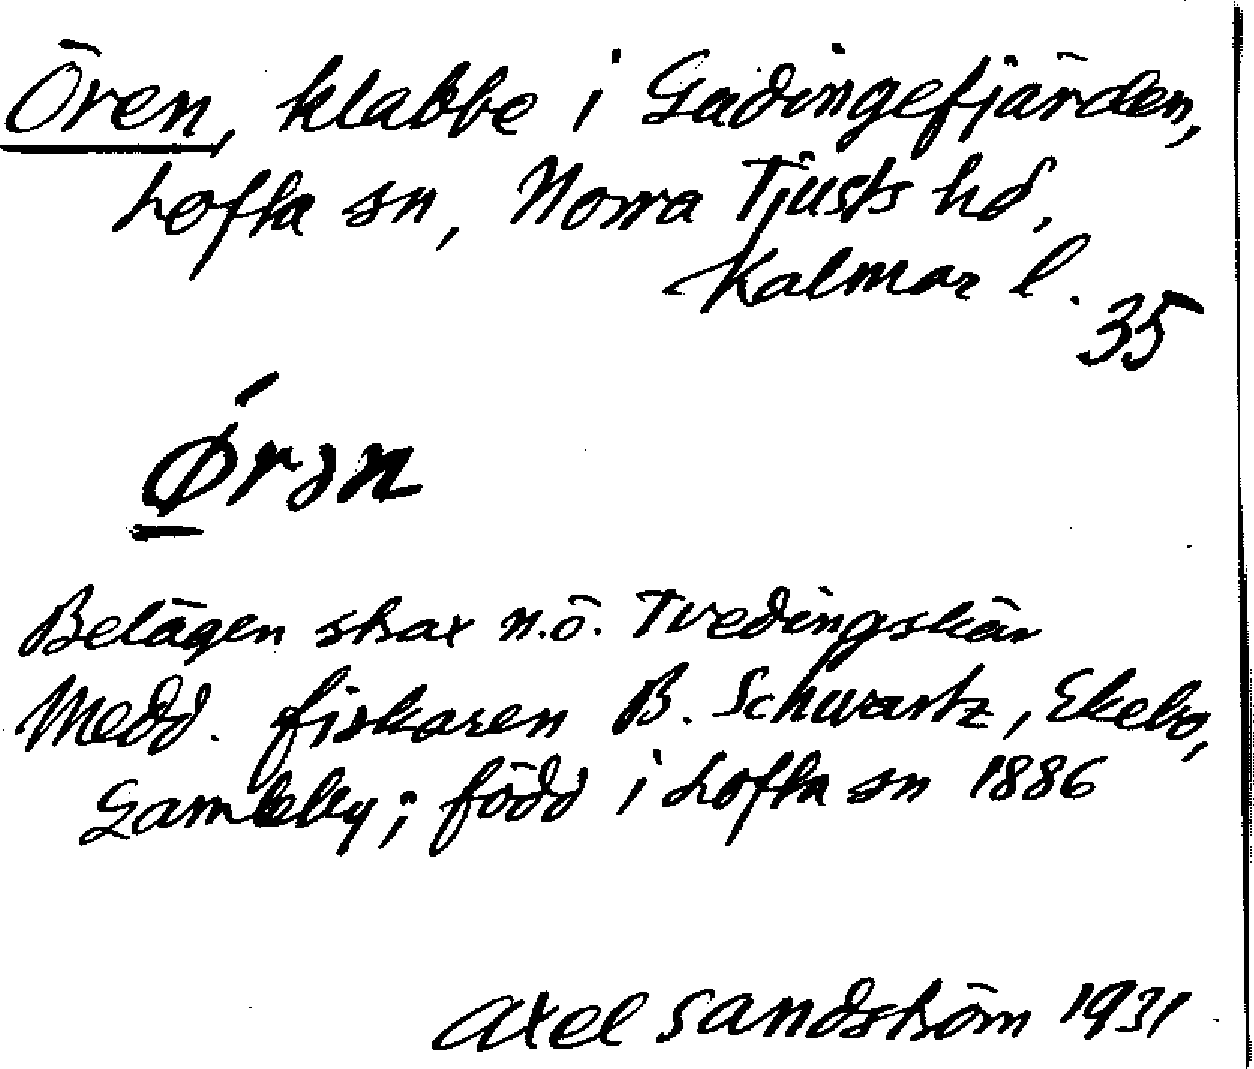 Ören, klabbe i Gudingefjärden,
Lofta sn, Norra Tjusts hd,
Kalmar l.
35
Ǿrən
Belägen strax n.ö. Tvedingskär
Medd. fiskaren B. Schwartz, Ekebo,
Gamleby; född i Lofta sn 1886
Axel Sandström 1931